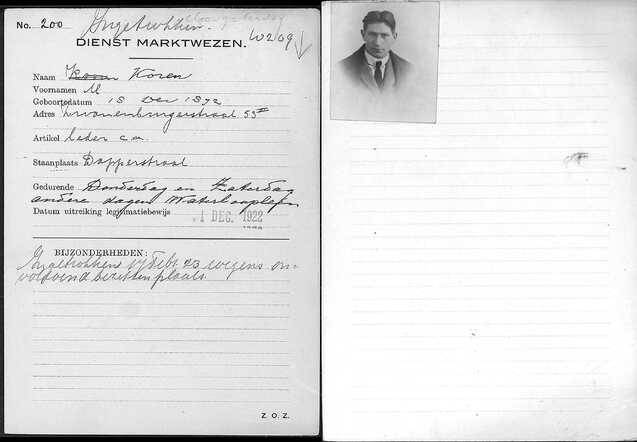 No. 200 Ingetrokken.
DIENST MARKTWEZEN. W209
Naam Koren
Voornamen M
Geboortedatum 18 Dec 1872
Adres Zwanenburgerstraat 55 II
Artikel leder c.a.
Staanplaats Dapperstraat
Gedurende Donderdag en Zaterdag
andere dagen Waterlooplein
Datum uitreiking legitimatiebewijs 1 DEC. 1922
BIJZONDERHEDEN:
Ingetrokken 17 Febr. 23 wegens on-
voldoend bezetten plaats.
Z. O. Z.